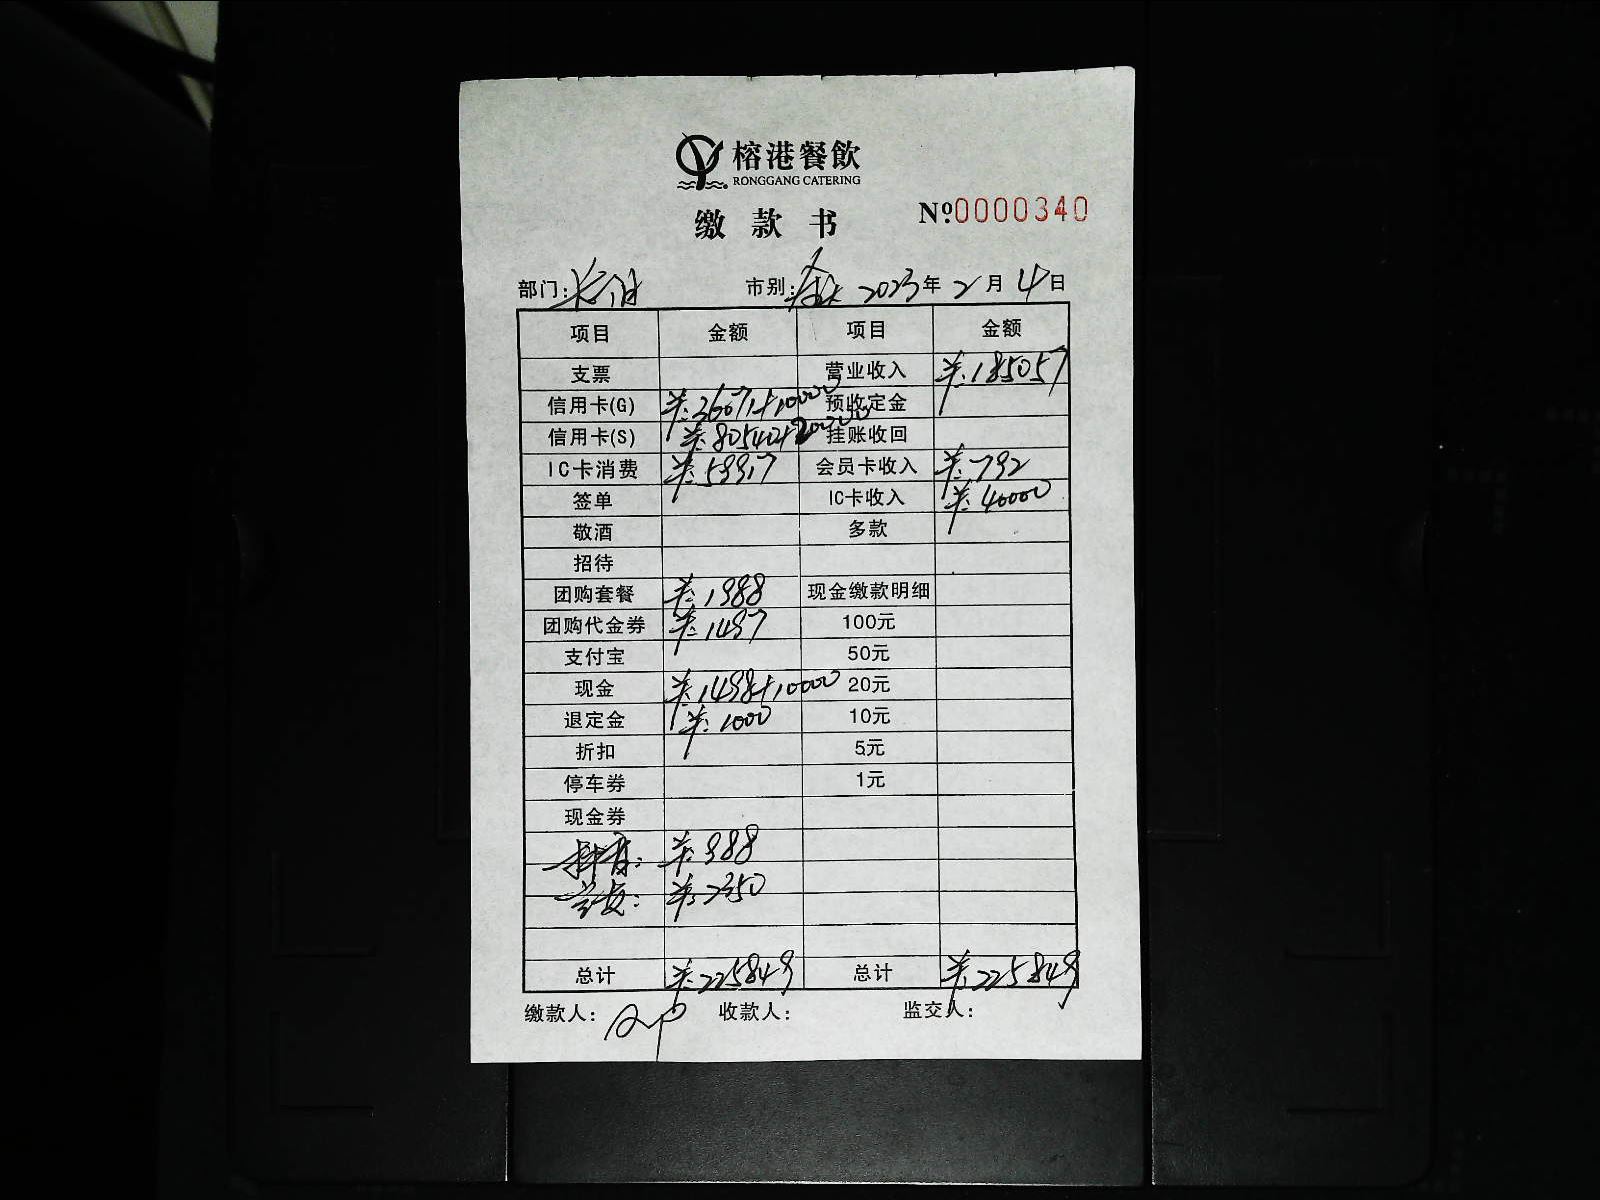 榕港餐飲
RONGGANG CATERING
缴款书 №0000340
部门: 市别: 2023年2月4日
项目 金额 项目 金额
支票 营业收入 ¥:185057
信用卡(G) ¥:36071+10000 预收定金
信用卡(S) ¥:80540+20000 挂账收回
IC卡消费 ¥:59917 会员卡收入 ¥:792
签单 IC卡收入 ¥:40000
敬酒 多款
招待
团购套餐 ¥:1988 现金缴款明细
团购代金券 ¥:1497 100元
支付宝 50元
现金 ¥:1498+10000 20元
退定金 ¥:1000 10元
折扣 5元
停车券 1元
现金券
抖音: ¥:988
¥:2350
总计 ¥:225849 总计 ¥:225849
缴款人: 收款人: 监交人: